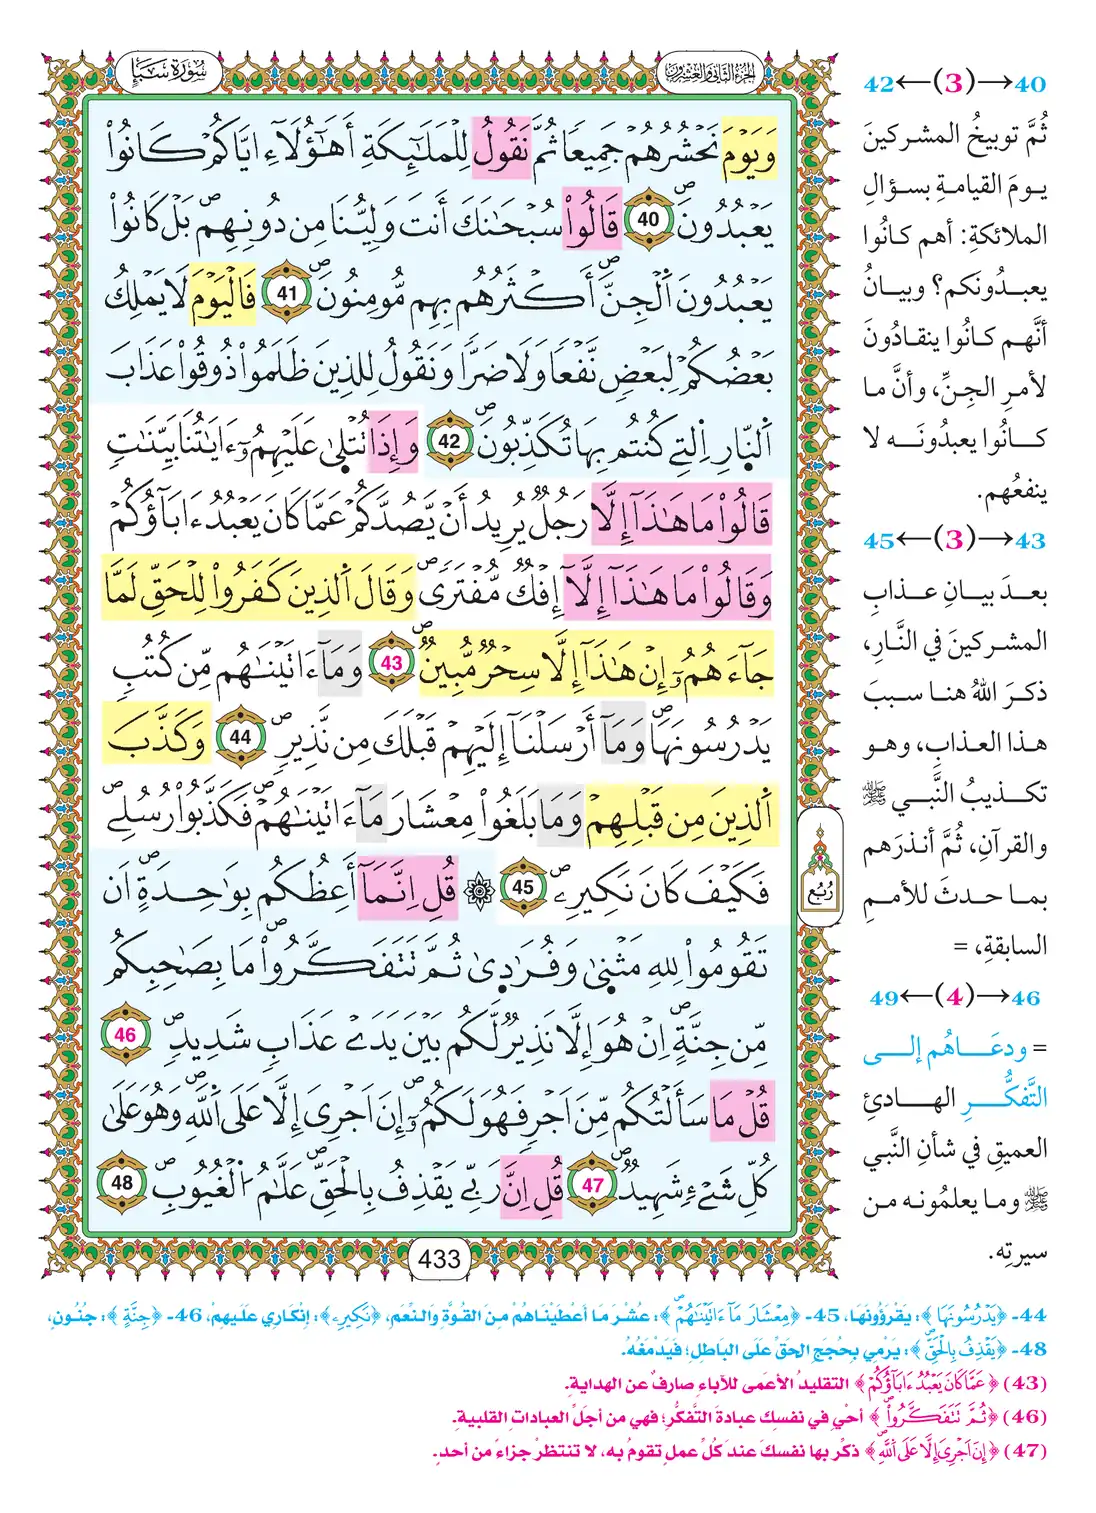 الجزء الثاني والعشرون
سُورَةُ سَبَإٍ
وَيَوْمَ نَحْشُرُهُمْ جَمِيعًا ثُمَّ نَقُولُ لِلْمَلَٰٓئِكَةِ أَهَٰٓؤُلَآءِ ايَّاكُمْ كَانُوا۟
يَعْبُدُونَ 40 قَالُوا۟ سُبْحَٰنَكَ أَنتَ وَلِيُّنَا مِن دُونِهِم بَلْ كَانُوا۟
يَعْبُدُونَ اَلْجِنَّ أَكْثَرُهُم بِهِم مُّومِنُونَ 41 فَالْيَوْمَ لَا يَمْلِكُ
بَعْضُكُمْ لِبَعْضٍ نَّفْعًا وَلَا ضَرًّا وَنَقُولُ لِلذِينَ ظَلَمُوا۟ ذُوقُوا۟ عَذَابَ
اَلنَّارِ اِلتِے كُنتُم بِهَا تُكَذِّبُونَ 42 وَإِذَا تُتْلَىٰ عَلَيْهِمُۥٓ ءَايَٰتُنَا بَيِّنَٰتٍ
قَالُوا۟ مَا هَٰذَآ إِلَّا رَجُلٌ يُرِيدُ أَنْ يَّصُدَّكُمْ عَمَّا كَانَ يَعْبُدُ ءَابَآؤُكُمْ
وَقَالُوا۟ مَا هَٰذَآ إِلَّآ إِفْكٌ مُّفْتَرًى وَقَالَ اَلذِينَ كَفَرُوا۟ لِلْحَقِّ لَمَّا
جَآءَهُمُۥٓ إِنْ هَٰذَآ إِلَّا سِحْرٌ مُّبِينٌ 43 وَمَآ ءَاتَيْنَٰهُم مِّن كُتُبٍ
يَدْرُسُونَهَا وَمَآ أَرْسَلْنَآ إِلَيْهِمْ قَبْلَكَ مِن نَّذِيرٍ 44 وَكَذَّبَ
اَلذِينَ مِن قَبْلِهِمْ وَمَا بَلَغُوا۟ مِعْشَارَ مَآ ءَاتَيْنَٰهُمْ فَكَذَّبُوا۟ رُسُلِے
فَكَيْفَ كَانَ نَكِيرِے 45 ۞ قُلِ اِنَّمَآ أَعِظُكُم بِوَٰحِدَةٍ اَن
تَقُومُوا۟ لِلهِ مَثْنَىٰ وَفُرَٰدَىٰ ثُمَّ تَتَفَكَّرُوا۟ مَا بِصَٰحِبِكُم
مِّن جِنَّةٍ اِنْ هُوَ إِلَّا نَذِيرٌ لَّكُم بَيْنَ يَدَےْ عَذَابٍ شَدِيدٍ 46
قُلْ مَا سَأَلْتُكُم مِّنَ اَجْرٍ فَهُوَ لَكُمُۥٓ إِنَ اَجْرِىَ إِلَّا عَلَى اَللَّهِ وَهُوَ عَلَىٰ
كُلِّ شَےْءٍ شَهِيدٌ 47 قُلِ اِنَّ رَبِّے يَقْذِفُ بِالْحَقِّ عَلَّٰمُ اُلْغُيُوبِ 48
رُبُع
433
40→(3)←42
ثُمَّ توبيخُ المشركينَ
يومَ القيامةِ بسؤالِ
الملائكةِ: أهم كانُوا
يعبدُونَكم؟ وبيانُ
أنَّهم كانُوا ينقادُونَ
لأمرِ الجِنِّ، وأنَّ ما
كانُوا يعبدُونَه لا
ينفعُهم.
43→(3)←45
بعدَ بيانِ عذابِ
المشركينَ في النَّارِ،
ذكرَ اللهُ هنا سببَ
هذا العذابِ، وهو
تكذيبُ النَّبي ﷺ
والقرآنِ، ثُمَّ أنذرَهم
بما حدثَ للأممِ
السابقةِ، =
46→(4)←49
= ودعَاهُم إلى
التَّفكُّرِ الهادئِ
العميقِ في شأنِ النَّبي
ﷺ وما يعلمُونه من
سيرتِه.
44- ﴿يَدْرُسُونَهَا﴾: يَقْرَؤُونَهَا، 45- ﴿مِعْشَارَ مَآ ءَاتَيْنَٰهُمْ﴾: عُشْرَ مَا أَعْطَيْنَاهُمْ مِنَ القُوَّةِ وَالنِّعَمِ، ﴿نَكِيرِے﴾: إنْكَارِي عَلَيهِمْ، 46- ﴿جِنَّةٍ﴾: جُنُونٍ،
48- ﴿يَقْذِفُ بِالْحَقِّ﴾: يَرْمِي بِحُجَجِ الحَقِّ عَلَى البَاطِلِ؛ فَيَدْمَغُهُ.
(43) ﴿عَمَّا كَانَ يَعْبُدُ ءَابَآؤُكُمْ﴾ التقليدُ الأعمَى للآباءِ صارفٌ عن الهدايةِ.
(46) ﴿ثُمَّ تَتَفَكَّرُوا۟﴾ أحْيِ في نفسِك عبادةَ التَّفكُّرِ؛ فهي من أجَلِّ العباداتِ القلبيةِ.
(47) ﴿إِنَ اَجْرِىَ إِلَّا عَلَى اَللَّهِ﴾ ذكِّر بها نفسكَ عندَ كُلِّ عملٍ تقومُ به، لا تنتظرْ جزاءً من أحدٍ.